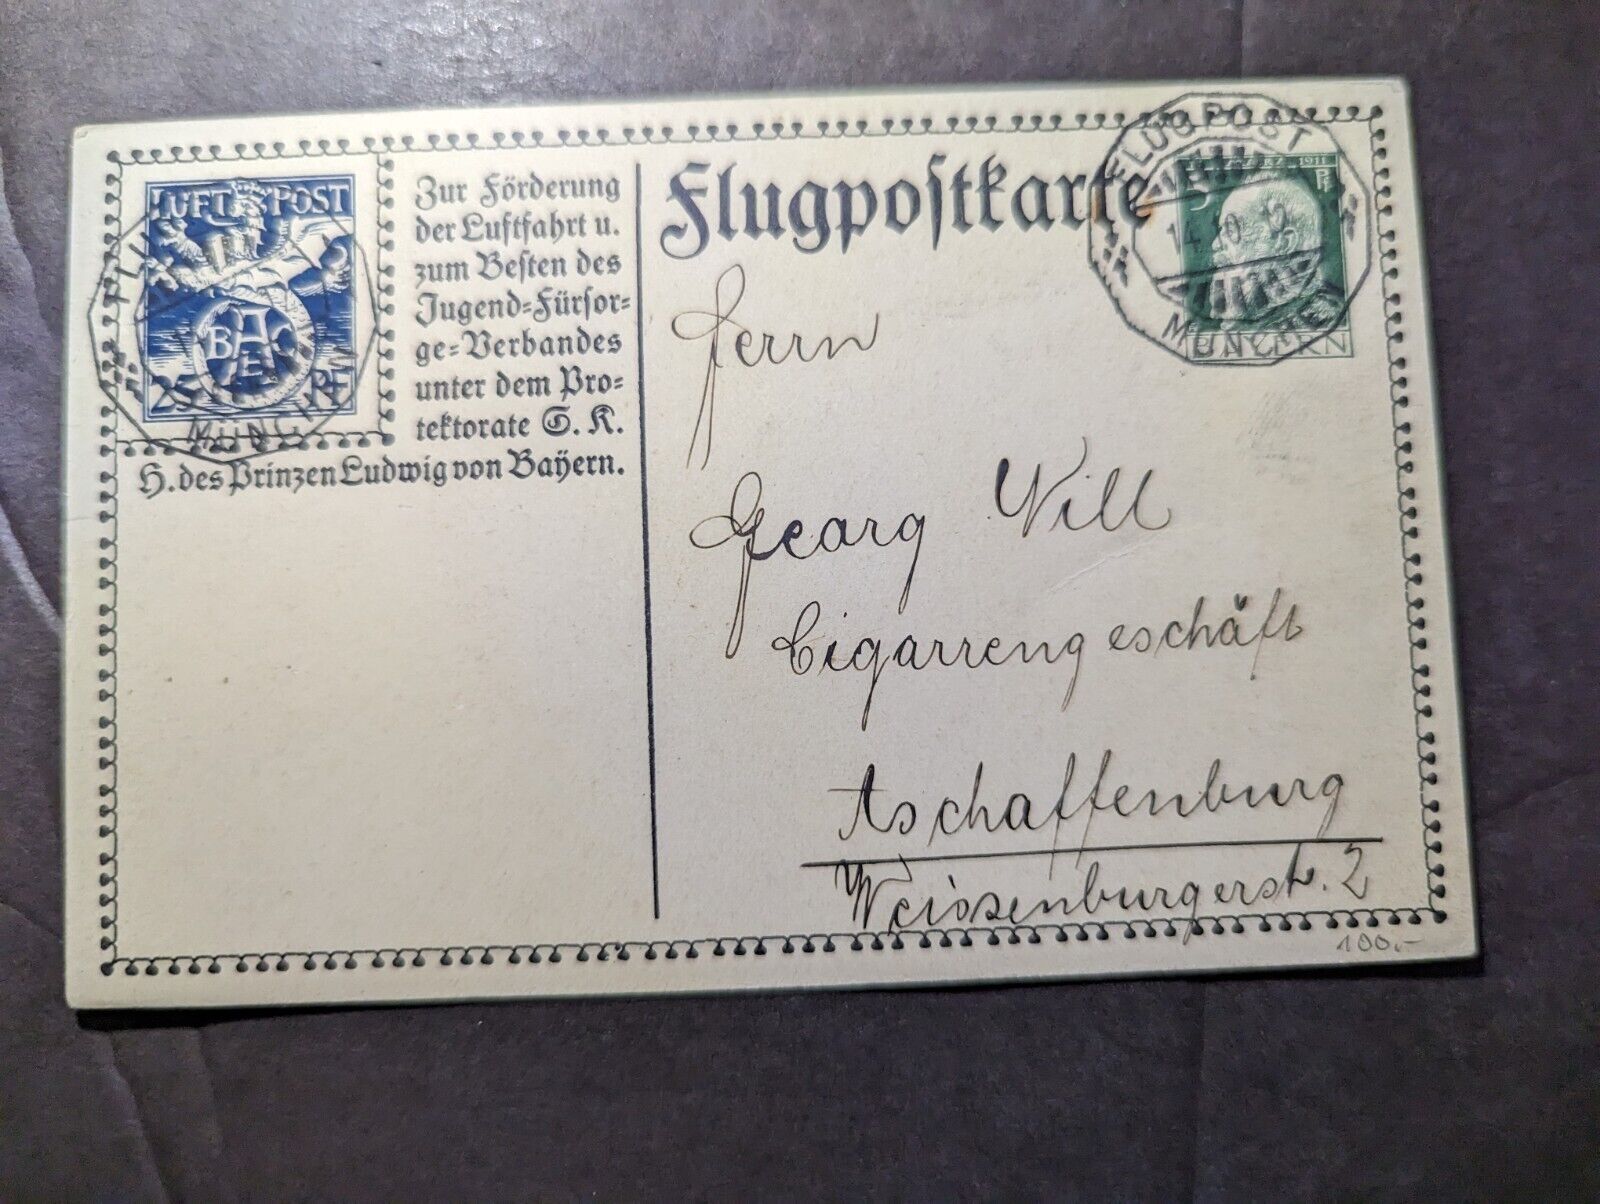 LUFTPOST
BAE
25 PF
Zur Förderung
der Luftfahrt u.
zum Besten des
Jugend=Fürsor=
ge=Verbandes
unter dem Pro=
tektorate S. K.
H. des Prinzen Ludwig von Bayern.
Flugpostkarte
FLUGPOST
MÜNCHEN
1911
5 Pf
BAYERN
Herrn
Georg Will
Cigarrengeschäft
Aschaffenburg
Weissenburgerstr. 2
100.-